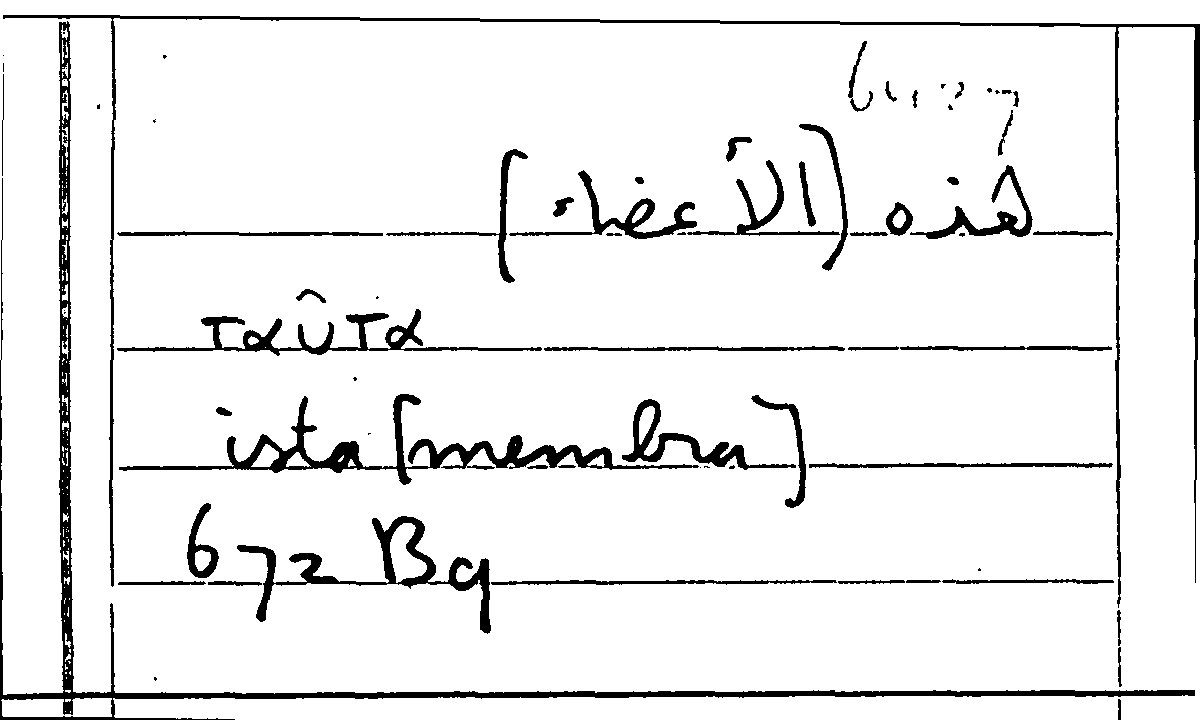 هذه (الأعضاء]
ταῦτα
ista [membra]
672 B9